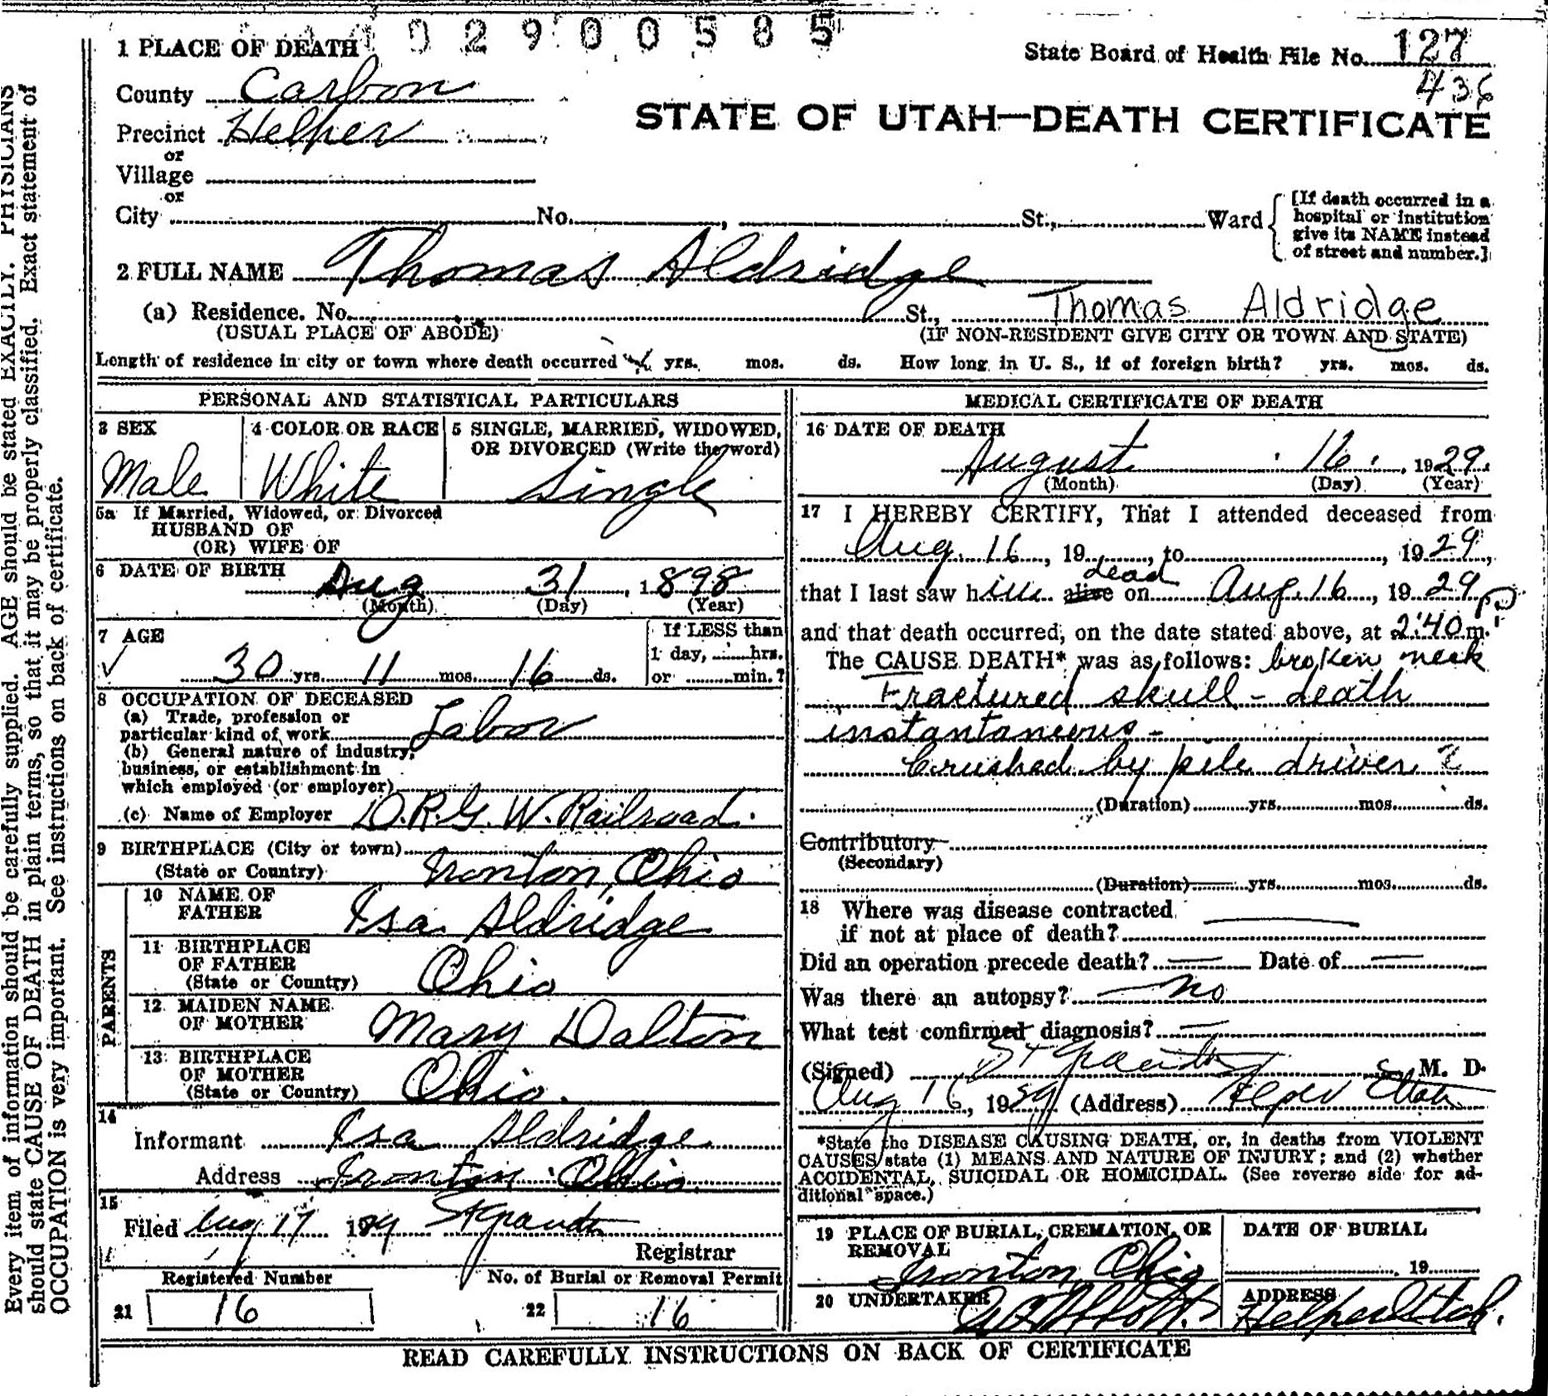 02900585
1 PLACE OF DEATH
State Board of Health File No. 127
436
County Carbon
STATE OF UTAH—DEATH CERTIFICATE
Precinct Helper
or
Village
or
City No. , St., Ward
[If death occurred in a
hospital or institution
give its NAME instead
of street and number.]
2 FULL NAME Thomas Aldridge
(a) Residence. No. St., Thomas Aldridge
(USUAL PLACE OF ABODE) (IF NON-RESIDENT GIVE CITY OR TOWN AND STATE)
Length of residence in city or town where death occurred yrs. mos. ds. How long in U. S., if of foreign birth? yrs. mos. ds.
PERSONAL AND STATISTICAL PARTICULARS
3 SEX
Male
4 COLOR OR RACE
White
5 SINGLE, MARRIED, WIDOWED,
OR DIVORCED (Write the word)
Single
5a If Married, Widowed, or Divorced
HUSBAND OF
(OR) WIFE OF
6 DATE OF BIRTH
Aug 31, 1898
(Month) (Day) (Year)
7 AGE
30 yrs. 11 mos. 16 ds.
If LESS than
1 day, hrs.
or min.?
8 OCCUPATION OF DECEASED
(a) Trade, profession or
particular kind of work Labor
(b) General nature of industry,
business, or establishment in
which employed (or employer)
(c) Name of Employer D.R.G.W. Railroad.
9 BIRTHPLACE (City or town)
(State or Country) Ironton, Ohio
PARENTS
10 NAME OF
FATHER Isa Aldridge
11 BIRTHPLACE
OF FATHER
(State or Country) Ohio
12 MAIDEN NAME
OF MOTHER Mary Dalton
13 BIRTHPLACE
OF MOTHER
(State or Country) Ohio.
14
Informant Isa Aldridge
Address Ironton Ohio.
15
Filed Aug 17 1929
Registrar
Registered Number
21 16
No. of Burial or Removal Permit
22 16
MEDICAL CERTIFICATE OF DEATH
16 DATE OF DEATH
August 16, 1929.
(Month) (Day) (Year)
17 I HEREBY CERTIFY, That I attended deceased from
Aug. 16, 19 , to , 1929,
dead
that I last saw him alive on Aug. 16, 1929
and that death occurred, on the date stated above, at 2:40 P.m.
The CAUSE DEATH* was as follows: broken neck
Fractured skull - death
instantaneous -
Crushed by pile driver
(Duration) yrs. mos. ds.
Contributory
(Secondary)
(Duration) yrs. mos. ds.
18 Where was disease contracted
if not at place of death?
Did an operation precede death? — Date of —
Was there an autopsy? no
What test confirmed diagnosis? —
(Signed) M. D.
Aug 16, 1929 (Address) Helper Utah
*State the DISEASE CAUSING DEATH, or, in deaths from VIOLENT
CAUSES, state (1) MEANS AND NATURE OF INJURY; and (2) whether
ACCIDENTAL, SUICIDAL OR HOMICIDAL. (See reverse side for ad-
ditional space.)
19 PLACE OF BURIAL, CREMATION, OR
REMOVAL
Ironton, Ohio
DATE OF BURIAL
19
20 UNDERTAKER
ADDRESS
Helper Utah.
READ CAREFULLY INSTRUCTIONS ON BACK OF CERTIFICATE
Every item of information should be carefully supplied. AGE should be stated EXACTLY. PHYSICIANS
should state CAUSE OF DEATH in plain terms, so that it may be properly classified. Exact statement of
OCCUPATION is very important. See instructions on back of certificate.